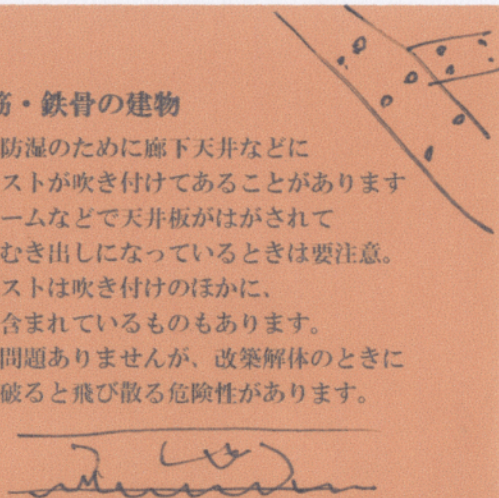 筋・鉄骨の建物
防湿のために廊下天井などに
ストが吹き付けてあることがあります
ームなどで天井板がはがされて
むき出しになっているときは要注意。
ストは吹き付けのほかに、
含まれているものもあります。
問題ありませんが、改築解体のときに
破ると飛び散る危険性があります。